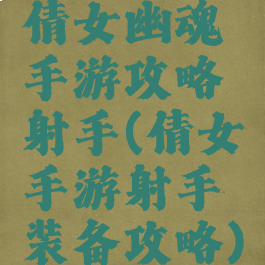 倩女幽魂
手游攻略
射手(倩女
手游射手
装备攻略)